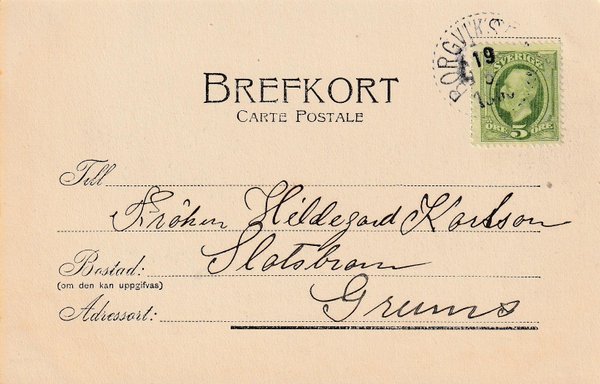 BREFKORT
CARTE POSTALE
BORGVIKS
19
SVERIGE
ÖRE 5 ÖRE
Till
Fröken Hildegard Karlson
Bostad: Slotsbron
(om den kan uppgifvas)
Adressort: Grums